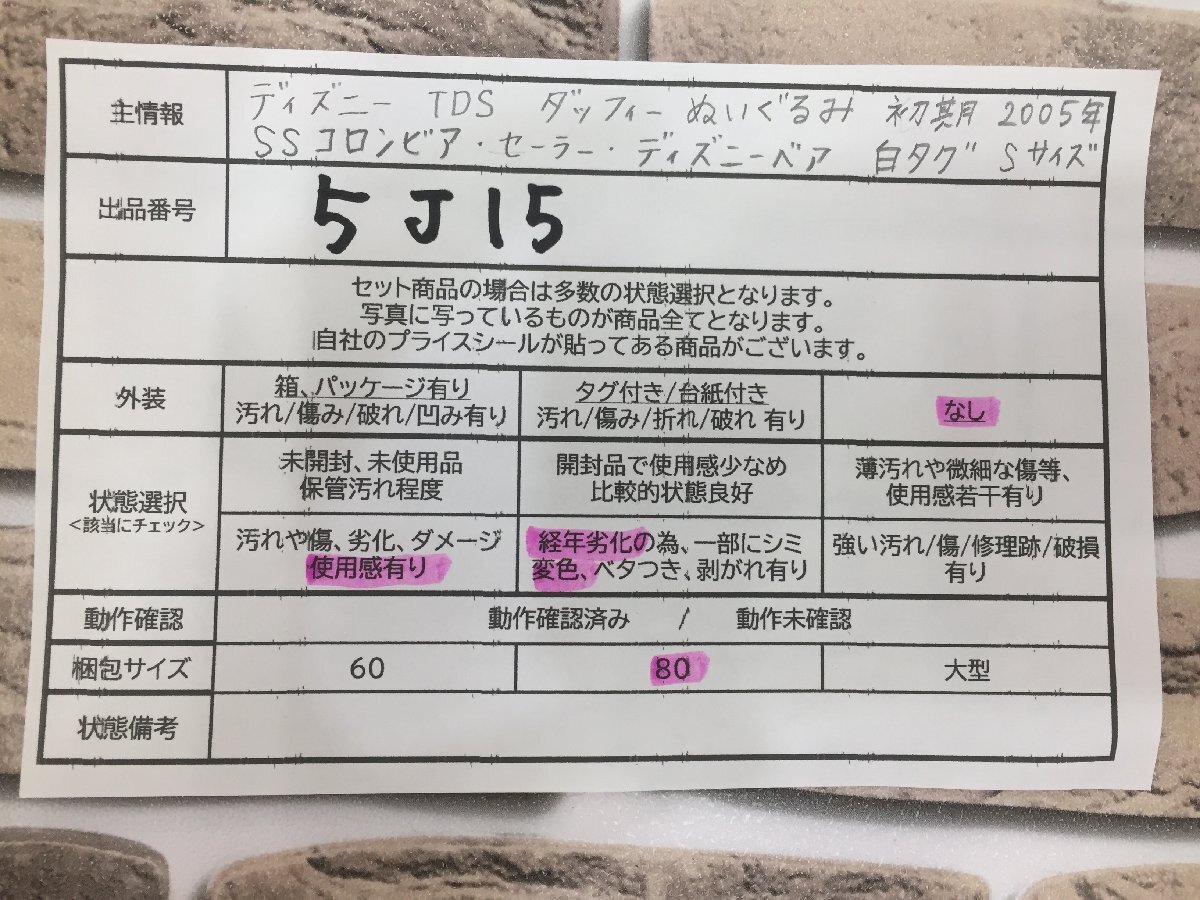 主情報
ディズニー TDS ダッフィー ぬいぐるみ 初期 2005年
SSコロンビア・セーラー・ディズニーベア 白タグ Sサイズ
出品番号
5J15
セット商品の場合は多数の状態選択となります。
写真に写っているものが商品全てとなります。
自社のプライスシールが貼ってある商品がございます。
外装
箱、パッケージ有り
汚れ/傷み/破れ/凹み有り
タグ付き/台紙付き
汚れ/傷み/折れ/破れ 有り
なし
状態選択
<該当にチェック>
未開封、未使用品
保管汚れ程度
開封品で使用感少なめ
比較的状態良好
薄汚れや微細な傷等、
使用感若干有り
汚れや傷、劣化、ダメージ
使用感有り
経年劣化の為、一部にシミ
変色、ベタつき、剥がれ有り
強い汚れ/傷/修理跡/破損
有り
動作確認
動作確認済み / 動作未確認
梱包サイズ
60
80
大型
状態備考